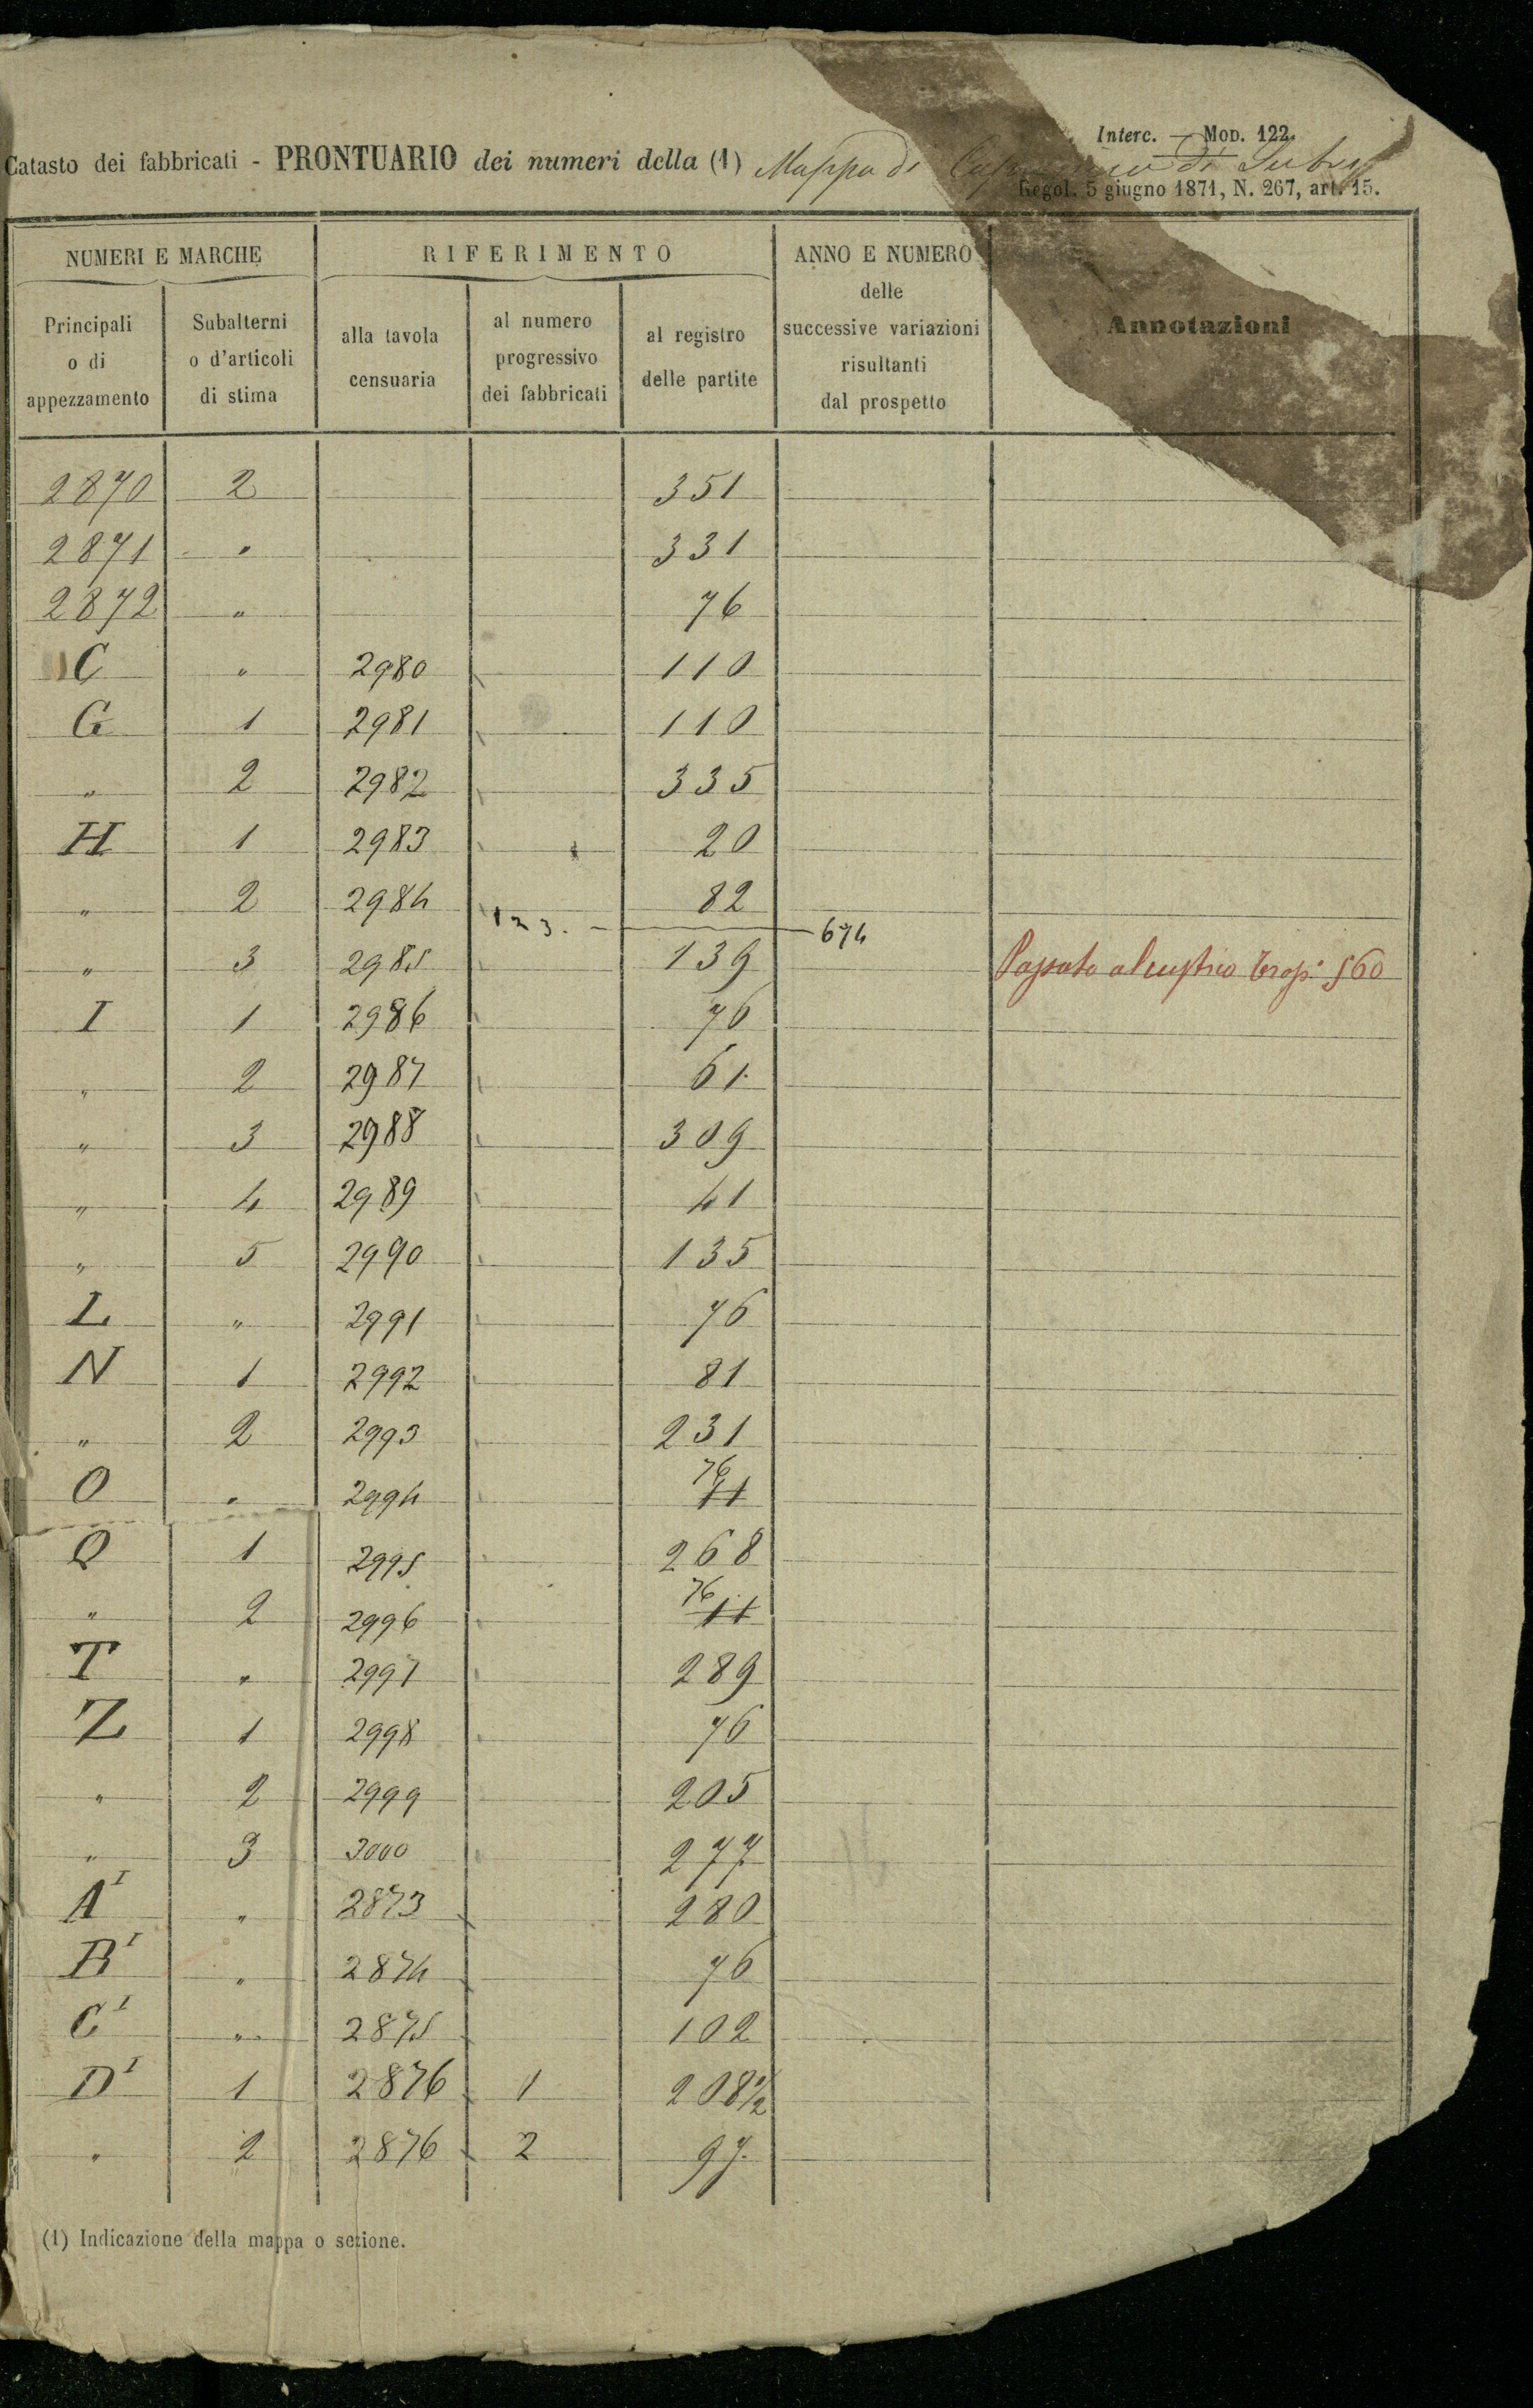 Interc. — MOD. 122.
Catasto dei fabbricati - PRONTUARIO dei numeri della (1) Mappa di
Regol. 5 giugno 1871, N. 267, art. 15.
NUMERI E MARCHE RIFERIMENTO ANNO E NUMERO delle successive variazioni risultanti dal prospetto Annotazioni
Principali o di appezzamento Subalterni o d'articoli di stima alla tavola censuaria al numero progressivo dei fabbricati al registro delle partite
2870 2 351
2871 " 331
2872 " 76
C " 2980 110
G 1 2981 110
" 2 2982 335
H 1 2983 20
" 2 2984 82
123. 674
" 3 2985 139 Passato al 560
I 1 2986 76
" 2 2987 61
" 3 2988 309
" 4 2989 41
" 5 2990 135
L " 2991 76
N 1 2992 81
" 2 2993 231
O " 2994 76 11
Q 1 2995 268
" 2 2996 76 11
T " 2997 289
Z 1 2998 76
" 2 2999 205
" 3 3000 277
A¹ " 2873 280
B¹ " 2874 76
C¹ " 2875 102
D¹ 1 2876 1 208½
" 2 2876 2 97
(1) Indicazione della mappa o sezione.